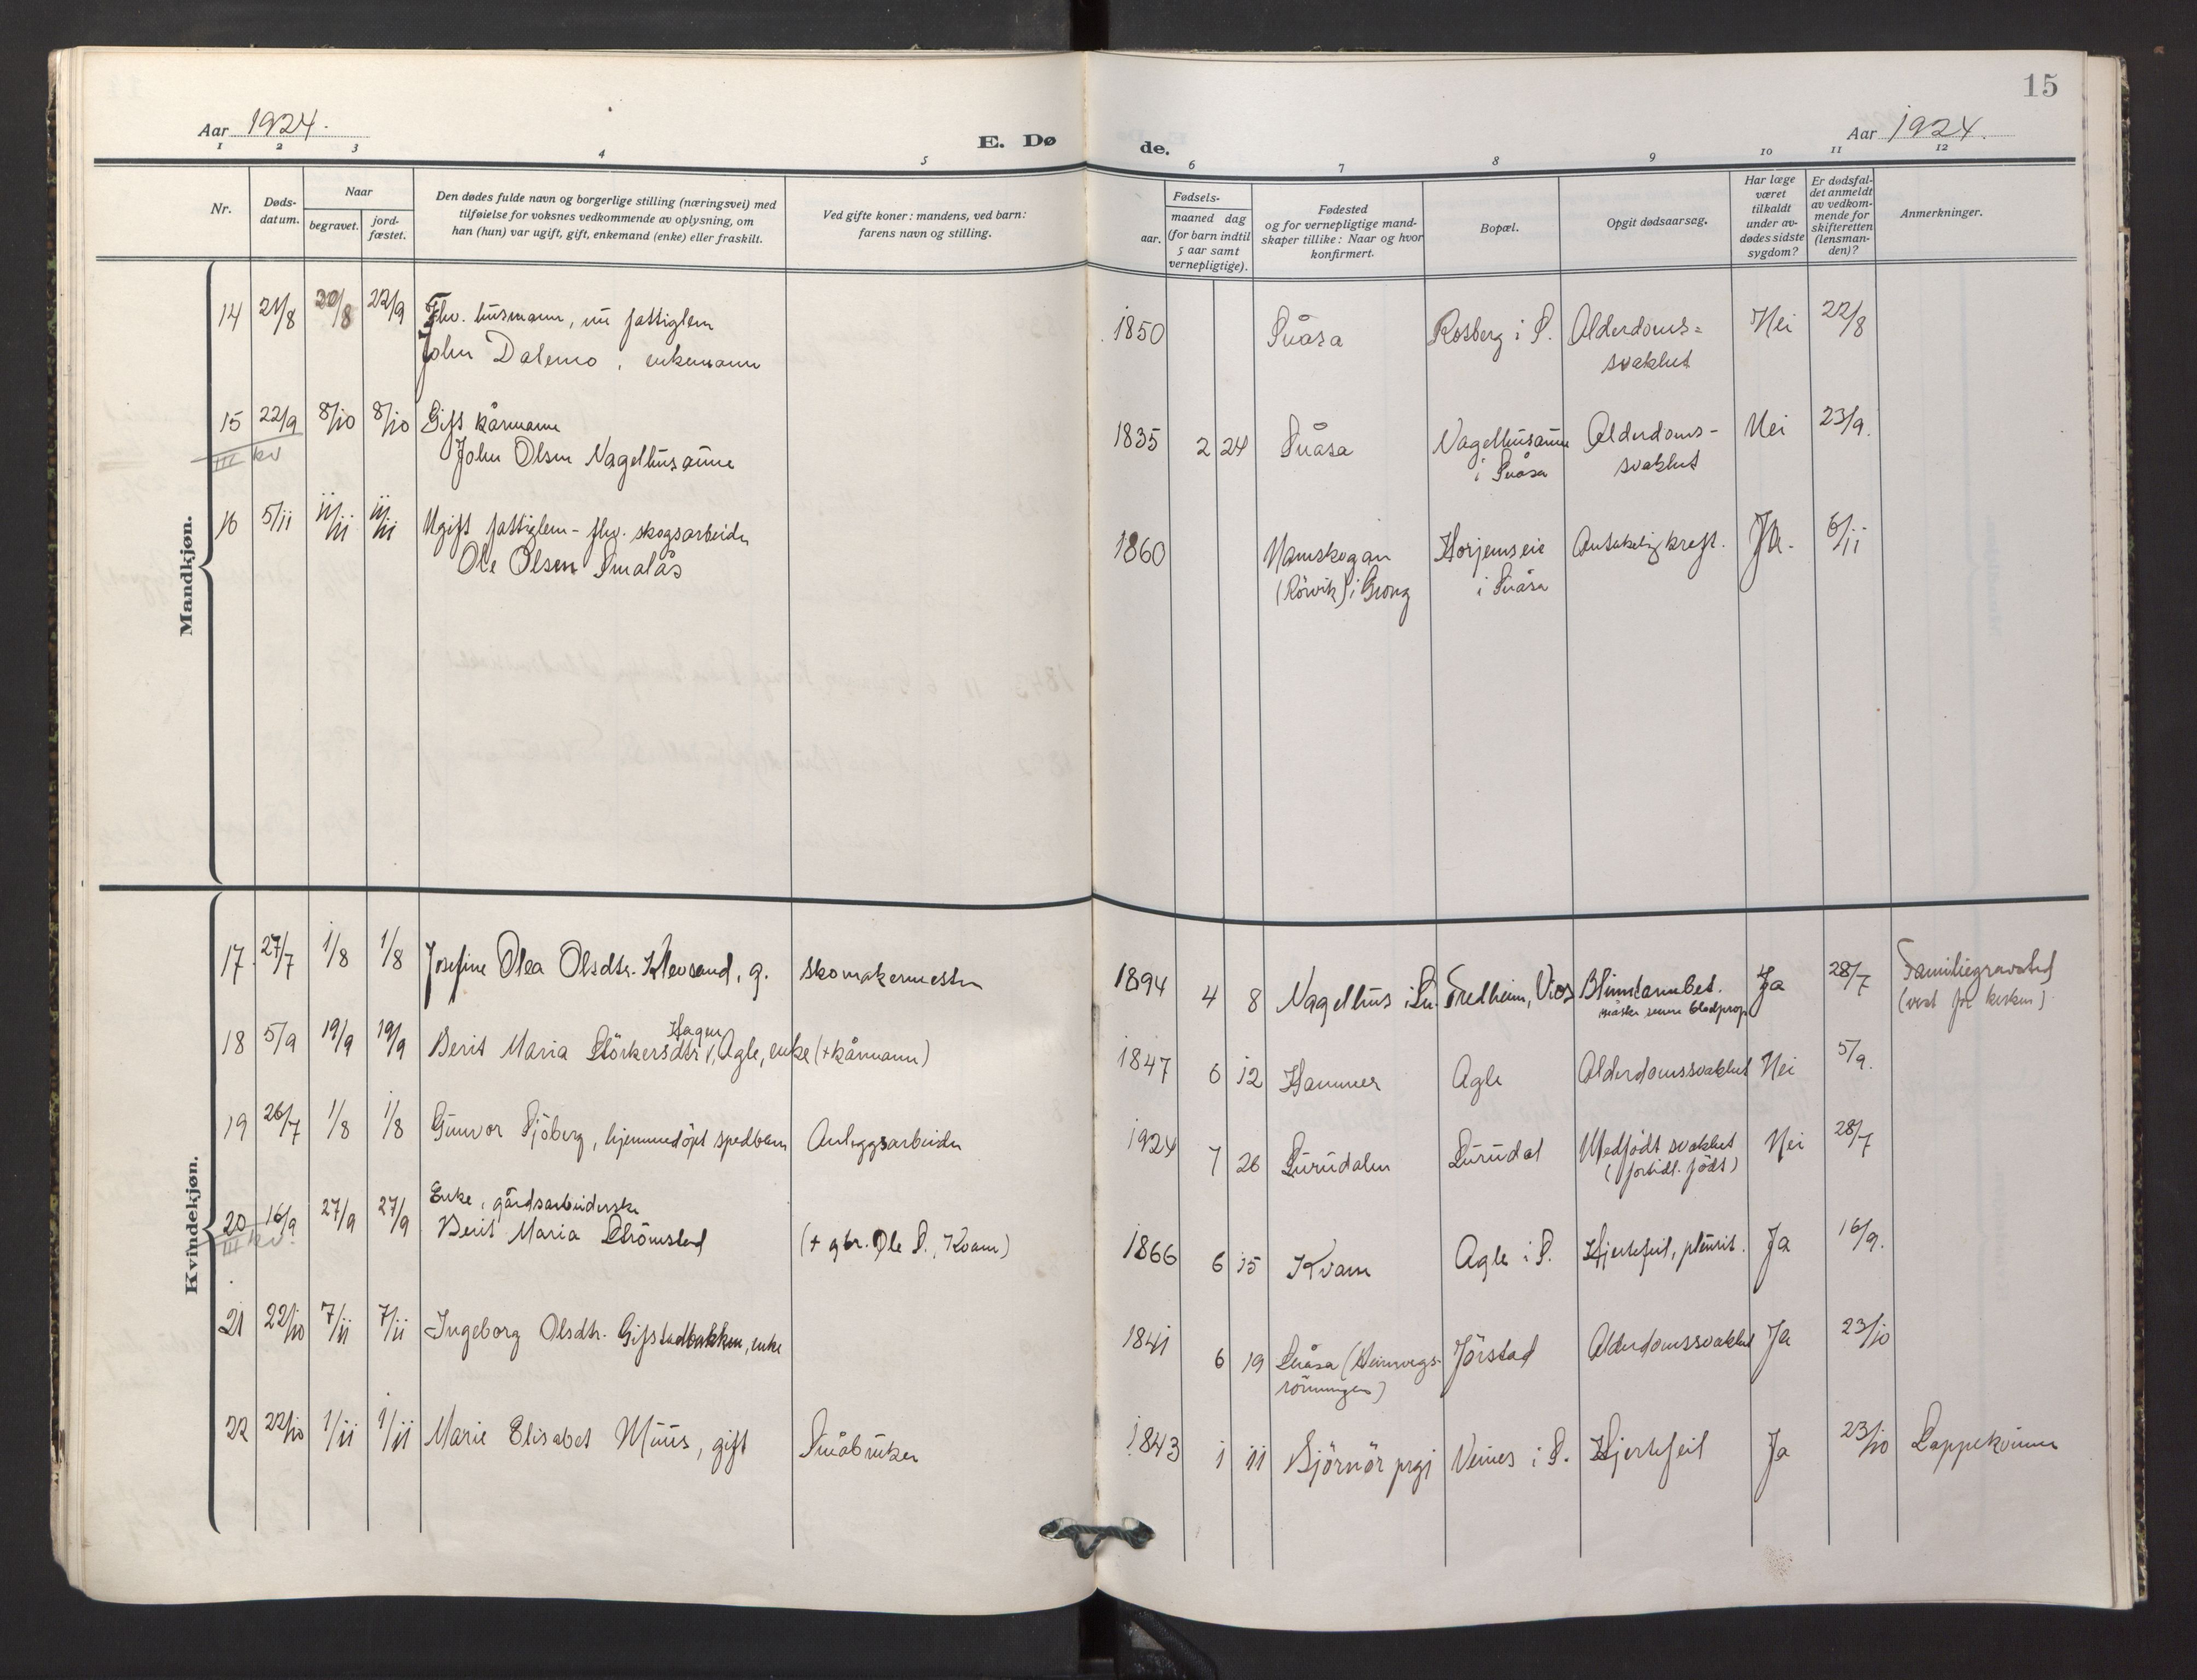 15
Aar 1924.
E. Døde.
Aar 1924.
1 2 3 4 5 6 7 8 9 10 11 12
Nr.
Døds-
datum.
Naar
begravet.
jord-
fæstet.
Den dødes fulde navn og borgerlige stilling (næringsvei) med
tilføielse for voksnes vedkommende av oplysning, om
han (hun) var ugift, gift, enkemand (enke) eller fraskilt.
Ved gifte koner: mandens, ved barn:
farens navn og stilling.
Fødsels-
aar.
maaned dag
(for barn indtil
5 aar samt
vernepligtige).
Fødested
og for vernepligtige mand-
skaper tillike: Naar og hvor
konfirmert.
Bopæl.
Opgit dødsaarsag.
Har læge
været
tilkaldt
under av-
dødes sidste
sygdom?
Er dødsfal-
det anmeldt
av vedkom-
mende for
skifteretten
(lensman-
den)?
Anmerkninger.
Mandkjøn.
14 21/8 30/8 22/9 Fhv. husmann, nu fattiglem 1850 Snåsa Rosberg i S. Alderdoms= Nei 22/8
John Dalemo, enkemann svakhet
15 22/9 8/10 8/10 Gift kårmann 1835 2 24 Snåsa Nagelhusaune Alderdoms- Nei 23/9.
III kv John Olsen Nagelhusaune i Snåsa svakhet
16 5/11 11/11 11/11 Ugift fattiglem - fhv. skogsarbeider 1860 Namskogan Horjemseie Antakelig kreft. Ja. 6/11
Ole Olsen Smalås (Rörvik) i Grong i Snåsa
Kvindekjøn.
17. 27/7 1/8 1/8 Josefine Olea Olsdtr. Klevsand, g. skomakermester 1894 4 8 Nagelhus i Sn. Fredheim, Vios Blinntarmbet. Ja 28/7 Familiegravsted
blodprop (vest for kirken)
18 5/9 19/9 19/9 Berit Maria Störkersdtr Hagen, Agle, enke (+ kårmann) 1847 6 12 Hammer Agle Alderdomssvakhet Nei 5/9.
19 26/7 1/8 1/8 Gunvor Sjöberg, hjemmedöpt spedbarn Anleggsarbeider 1924 7 26 Lurudalen Lurudal Medfödt svakhet Nei 28/7
(fortidl. födt)
20 16/9 27/9 27/9 Enke, gårdsarbeiderske
III kv. Berit Maria Strömstad (+ gbr. Ole S., Kvam) 1866 6 15 Kvam Agle i S. Hjertefeil, pleurit. Ja 16/9.
21 22/10 7/11 7/11 Ingeborg Olsdtr. Gifstadbakken, enke 1841 6 19 Snåsa (Heimvegs- Jörstad Alderdomssvakhet Ja 23/10
rönningen)
22 22/10 1/11 1/11 Marie Elisabet Muus, gift Småbruker 1843 1 11 Björnör prgj Vennes i S. Hjertefeil Ja 23/10 Lappekvinne